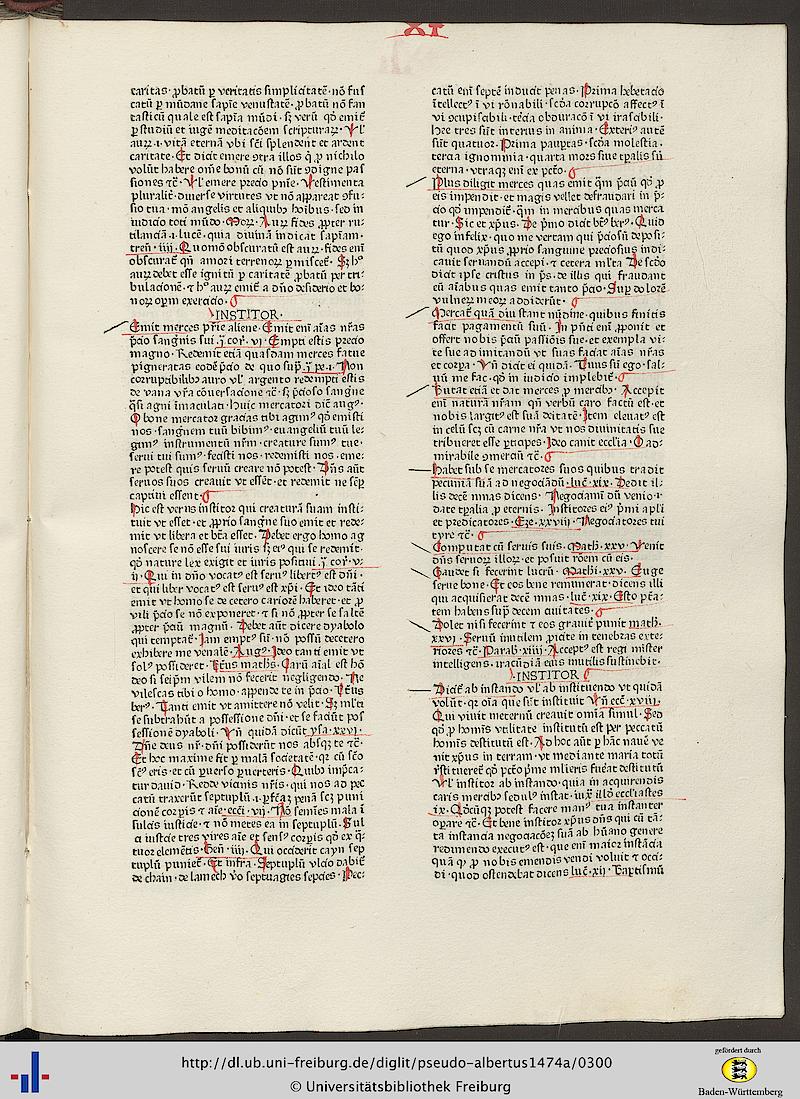 XI
caritas · ꝓbatū ꝑ veritatis simplicitatē · nō fus
catū ꝑ mūdane sapīe venustatē · ꝓbatū nō fan
tasticū quale est sapīa mūdi · sꝫ verū qḋ emiť
ꝑ studiū et iugē meditacōem scripturaꝝ · Vl̓
auꝝ · i · vitā eternā vbi scti splendent et ardent
caritate · Et dicit emere ꝯtra illos q̇ ꝓ nichilo
volūt habere om̄e bonū cū nō sūt ꝯdigne pas
siones ⁊c̄ · Vl̓ emere precio pn̄ie · Vestimenta
pluraliť · diuerse virtutes vt nō appareat ꝯfu
sio tua · mō angelis et aliquibꝯ hoībus · sed in
iudicio toti mūdo · Moꝝ · Auꝝ fides ꝓpter ru
tilanciā · i · lucē · quia diuinā indicat sapīam ·
treñ · iiij · Quomō obscuratū est auꝝ · fides em̄
obscurať qn̄ amori terrenoꝝ ꝑmisceť · Sꝫ hͦ
auꝝ debet esse ignitū ꝑ caritatē ꝓbatū per tri/
bulacionē · ⁊ hͦ auꝝ emiť a dn̄o desiderio et bo/
noꝝ opꝝ exercicio ·
INSTITOR ·
Emit merces pr̄ie aliene · Emit em̄ aīas nr̄as
p̄cio sangnis sui · j · cor̄ · vi · Empti estis precio
magno · Redemit etiā quasdam merces fatue
pigneratas eodē p̄cio de quo sup̄ · j · pe · i · Non
corruptibilibꝯ auro vl̓ argento redempti estis
de vana vr̄a cōuersacione ⁊c̄ · sꝫ p̄cioso sangīne
q̄si agni īmaculati · huic mercatori dic̄ augꝯ ·
O bone mercator gracias tibi agimꝯ qḋ emisti
nos · sangnem tuū bibimꝯ · euangeliū tuū le
gimꝯ instrumentū nr̄m · creature sumꝯ tue ·
serui tui sumꝯ · fecisti nos · redemisti nos · eme/
re potest quis seruū creare nō potest · Dn̄s aūt
seruos suos creauit vt essēt · et redemit ne sēp
captiui essent ·
Hic est verus institor qui creaturā suam insti/
tuit vt esset · et ꝓprio sangīne suo emit et rede/
mit vt libera et btā esset · Debet ergo homo ag
noscere se nō esse sui iuris sꝫ eiꝯ qui se redemit ·
qḋ nature lex exigit et iuris positiui · j · cor̄ · v/
ij · Qui in dn̄o vocatꝯ est seruꝯ libertꝯ est dn̄i ·
et qui liber vocatꝯ est seruꝯ est xp̄i · Et ideo tāti
emit vt homo se de cetero cariorē haberet · et ꝓ
vili p̄cio se nō exponeret · ⁊ si nō ꝓpter se saltē
ꝓpter p̄ciū magnū · Debet aūt dicere dyabolo
qui temptať · Iam emptꝯ sū · nō possū decetero
exhibere me venalē · Augꝯ · Ideo tanti emit vt
solꝯ possideret ·
deo si seip̄m vilem nō fecerit negligendo · Ne
vilescas tibi o homo · appende te in p̄cio ·
berꝯ · Tanti emit vt amittere nō velit · Sꝫ ml̄ti
se subtrahūt a possessione dn̄i · et se faciūt pos
sessionē dyaboli · Vn̄ quidā dicūt ysa · xxvi ·
Dn̄e deus nr̄ · dn̄i possiderūt nos absqꝫ te ⁊c̄ ·
Et hoc maxime fit ꝑ malā societatē · qꝛ cū sc̄o
sc̄ꝯ eris · et cū ꝑuerso ꝑuerteris ·
tur dauid · Redde vicinis nr̄is · qui nos ad pec
catū traxerūt septuplū · i · ꝑfcāꝫ penā scꝫ puni
cionē corꝑis ⁊ aīe · ecci · vij · Nō semīes mala ī
sulcis iusticie · ⁊ nō metes ea in septuplū · Sul
ci iustcie tres vires aīe et sensꝯ corꝑis qḋ ex q̇/
tuor elementis · Geñ · iiij · Qui occiderit cayn sep
tuplū punieť · Et infra · Septuplū vlcio dabiť
de chain · de lamech v̊o septuagies sepcies · Pec/
catū em̄ septē inducit penas · Prima hebetacio
ītellectꝯ ī vi rōnabili · scd̄a corrupcō affectꝯ ī
vi ꝯcupiscibili · tc̄ia obduracō ī vi irascibili ·
Hee tres sūt interius in anima · Exteriꝯ autē
sūt quatuor · Prima pauptas · scd̄a molestia ·
tercia ignominia · quarta mors siue tp̄alis sū
eterna · vtraqꝫ em̄ ex pctō ·
Plus diligit merces quas emit q̄m p̄ciū qḋ ꝓ
eis impendit · et magis vellet defraudari in p̄/
cio qḋ impendiť · q̄m in mercibus quas merca
tur · Sic et xp̄us · De p̄mo dicit btꝯ berꝯ · Quid
ego infelix · quo me vertam qui p̄ciosū deposi/
tū quod xp̄us ꝓprio sanguine preciosius indi/
cauit seruandū accepi · ⁊ cetera ml̄ta · De sc̄do
dicit ipse cristus in ps̄ · de illis qui fraudant
eū aīabus quas emit tanto p̄cio · Sup dolorē
vulneꝝ meoꝝ addiderūt ·
Mercať quā diu stant nūdine · quibus finitis
facit pagamentū suū · In pn̄ti em̄ ꝓponit et
offert nobis p̄ciū passiōis sue · et exempla vi/
te sue ad imitandū vt suas faciat aīas nr̄as
et corꝑa · Vn̄ dicit ei quidā · Tuus sū ego · sal/
uū me fac · qḋ in iudicio implebiť ·
Putat etiā et dat merces ꝓ mercibꝯ · Accepit
em̄ naturā nr̄am qn̄ verbū caro factū est · et
nobis largitꝯ est suā deitatē · Item eleuatꝯ est
in celū scꝫ cū carne nr̄a vt nos diuinitatis sue
tribueret esse ꝑticipes · Ideo canit eccl̄ia · O ad/
mirabile ꝯmerciū ⁊c̄ ·
Habet sub se mercatores suos quibus tradit
pecuniā suā ad negociādū · luc̄ · xix · Dedit il/
lis decē mnas dicens · Negociamī dū venio · i ·
date tp̄alia ꝓ eternis · Institores eiꝯ p̄mi apl̄i
et predicatores · Eze · xxviij · Negociatores tui
tyre ⁊c̄ ·
Computat cū seruis suis · Math̄ · xxv · Venit
dn̄s seruoꝝ illoꝝ · et posuit rōem cū eis ·
Gaudet si fecerint lucrū · Mathi · xxv · Euge
serue bone · Et eos bene remunerat · dicens illi
qui acquisierat decē mnas · luc̄ · xix · Esto ptā/
tem habens sup decem ciuitates ·
Dolet nisi fecerint ⁊ eos grauiť punit math̄ ·
xxvj · Seruū inutilem ꝓicite in tenebras exte/
riores ⁊c̄ · Parab̄ · xiiij · Acceptꝯ est regi mīster
intelligens · iracūdiā eius inutilis sustinebit ·
INSTITOR
Diciť ab instando vl̓ ab instituendo vt quidā
volūt · qꝛ oīa que sūt instituit Vn̄ ecc̄ · xviij ·
Qui viuit ineternū creauit omīa simul · Sed
qḋ ꝓ homīs vtilitate institutū est per peccatū
homīs destitutū est · Ad hoc aūt ꝑ hāc nauē ve
nit xp̄us in terram · vt mediante maria totū
r̄stitueret qḋ pctō p̄me mlieris fuerat destitutū
Vl̓ institor ab instando · quia in acquirendis
caris mercibꝯ sedulꝯ instat · iuxͣ illd̄ eccl̄iastes
ix · Qḋcūqꝫ potest facere manꝯ tua instanter
oꝑare ⁊c̄ · Et bene institor xp̄us dn̄s qui cū tā/
ta instancia negociacōeꝫ suā ab hūano genere
redimendo executꝯ est · que em̄ maior instācia
quā qḋ ꝓ nobis emendis vendi voluit ⁊ occi/
di · quod ostendebat dicens luc̄ · xij · Baptismū
http://dl.ub.uni-freiburg.de/diglit/pseudo-albertus1474a/0300
© Universitätsbibliothek Freiburg
gefördert durch
Baden-Württemberg